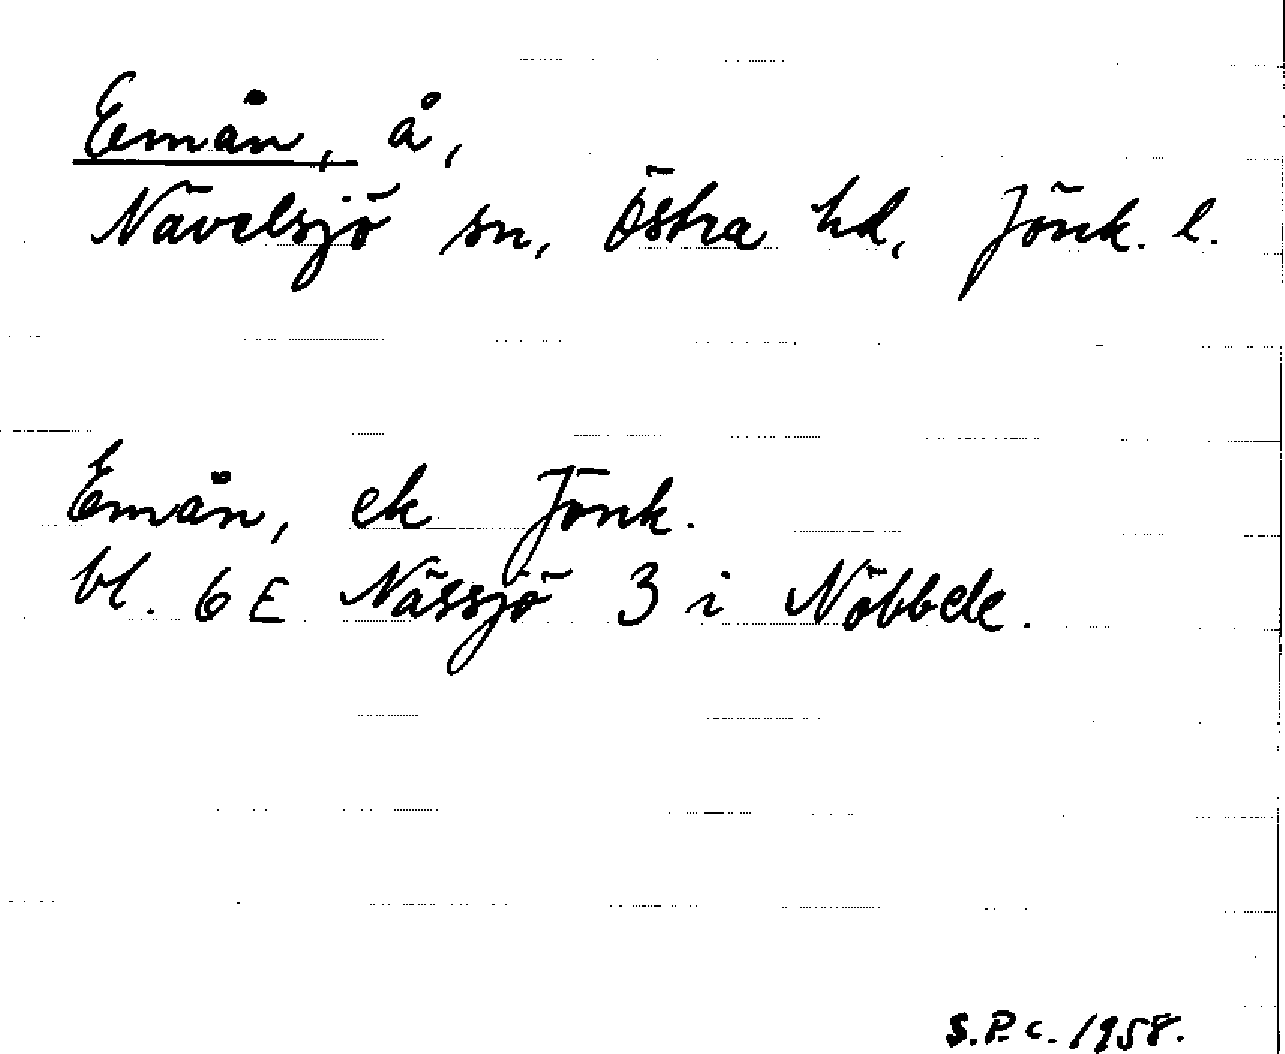 Emån, å,
Nävelsjö sn, Östra hd, Jönk. l.
Emån, ek Jönk.
bl. 6 E Nässjö 3 i Nöbbele.
S.P.C. 1958.